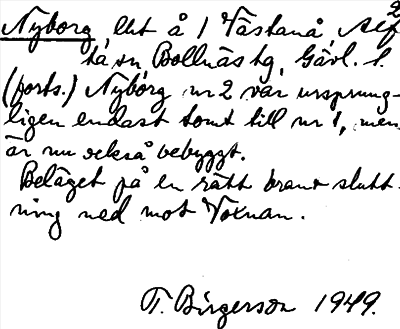 2
Nyborg, lht å 1 Västanå, Alf
ta sn Bollnäs tg, Gävl. l.
(forts.) Nyborg nr 2 var ursprung-
ligen endast tomt till nr 1, men
är nu också bebyggt.
Beläget på en rätt brant slutt-
ning ned mot Voxnan.
T. Birgerson 1949.